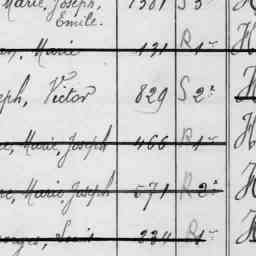 Marie, Joseph, 1301 S 3ᵉ
Emile.
Marie 131 R 1ʳᵉ H
eph, Victor 829 S 2ᵉ H
e, Marie, Joseph 466 R 1ʳᵉ H
e, Marie, Joseph 571 R 2ᵉ H
orges, Louis 334 R 1ʳᵉ H